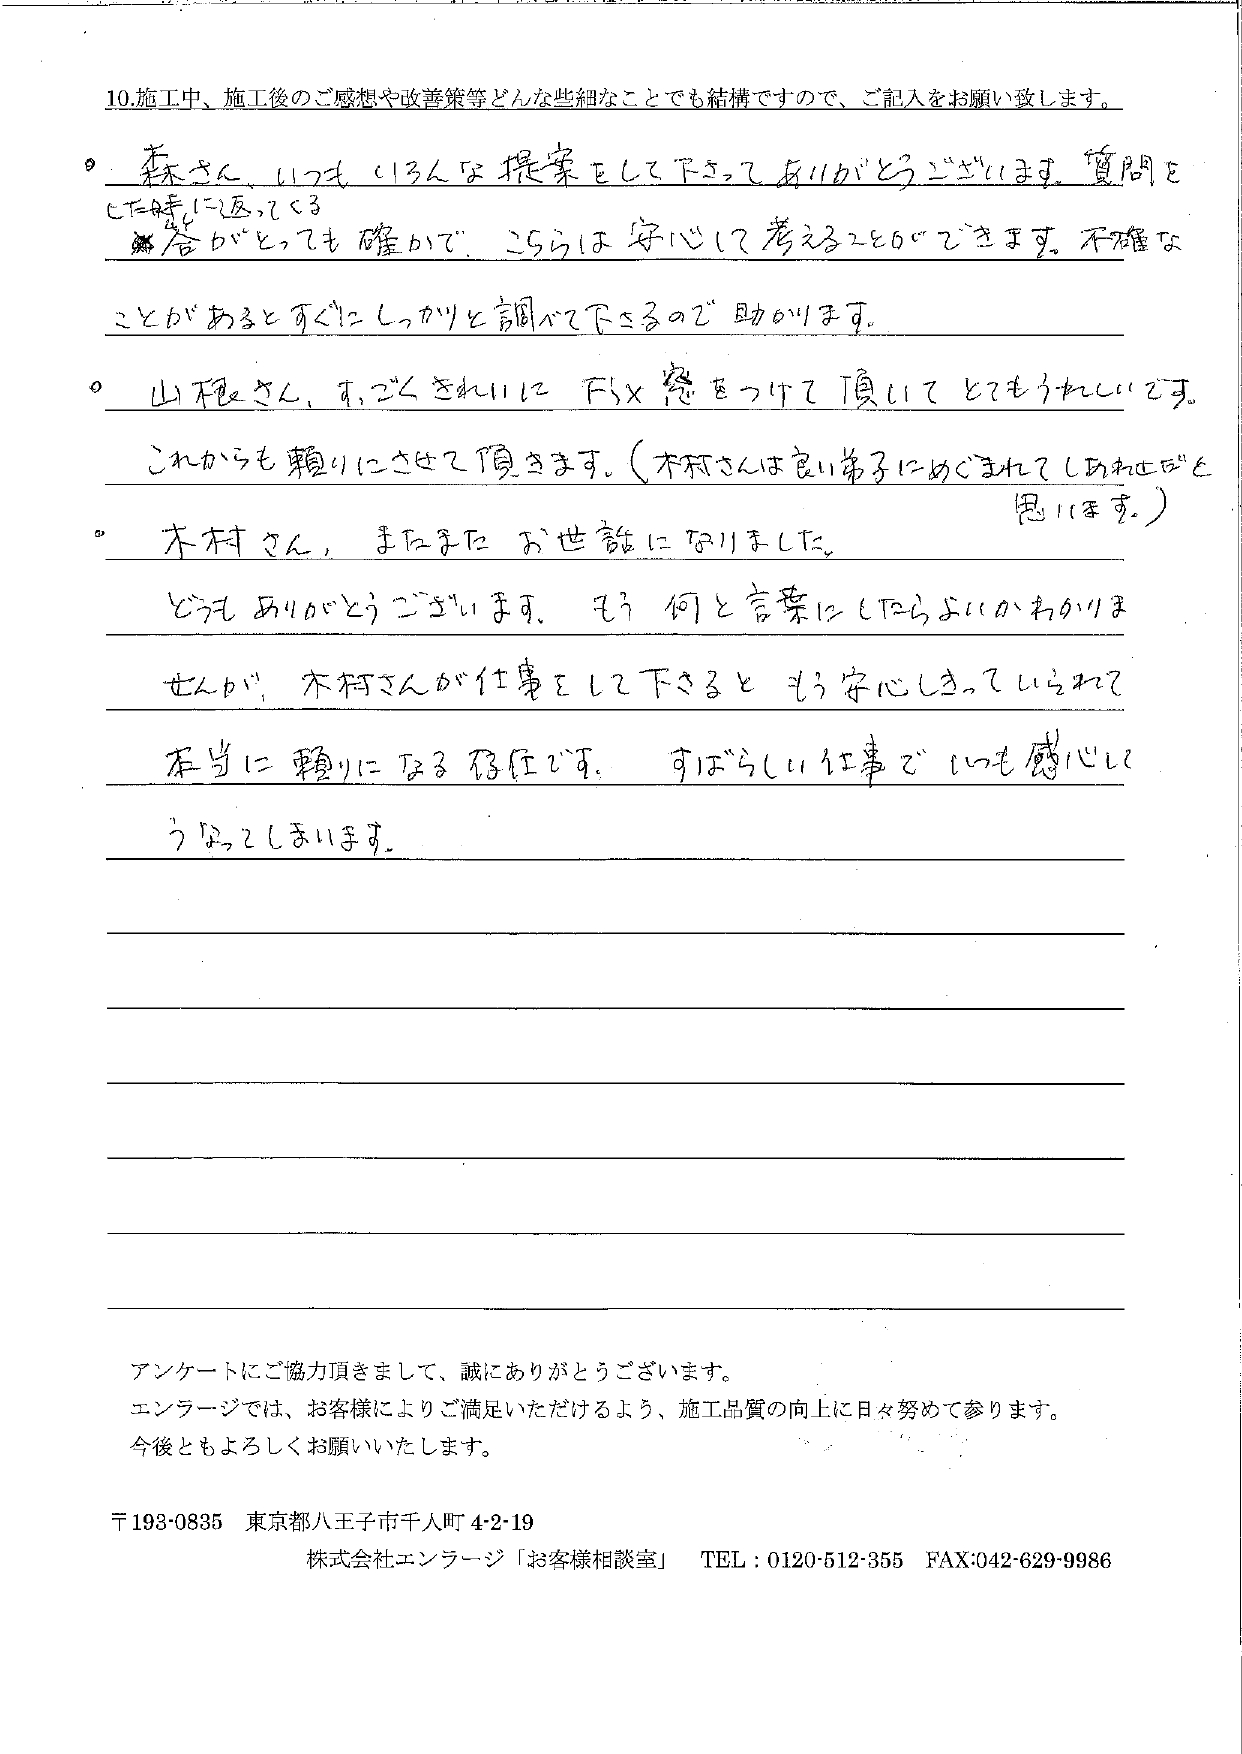 10.施工中、施工後のご感想や改善策等どんな些細なことでも結構ですので、ご記入をお願い致します。
○ 森さん、いつもいろんな提案をして下さってありがとうございます。質問を
した時に返ってくる
答がとっても確かで、こちらは安心して考えることができます。不確な
ことがあるとすぐにしっかりと調べて下さるので助かります。
○ 山根さん、すっごくきれいに 窓をつけて頂いてとてもうれしいです。
これからも頼りにさせて頂きます。(木村さんは良い弟子にめぐまれてしあわせだと
思います。)
○ 木村さん、またまたお世話になりました。
どうもありがとうございます。もう何と言葉にしたらよいかわかりま
せんが、木村さんが仕事をして下さるともう安心しきっていられて
本当に頼りになる存在です。すばらしい仕事でいつも感心して
うなってしまいます。
アンケートにご協力頂きまして、誠にありがとうございます。
エンラージでは、お客様によりご満足いただけるよう、施工品質の向上に日々努めて参ります。
今後ともよろしくお願いいたします。
〒193-0835 東京都八王子市千人町 4-2-19
株式会社エンラージ「お客様相談室」 TEL：0120-512-355 FAX:042-629-9986